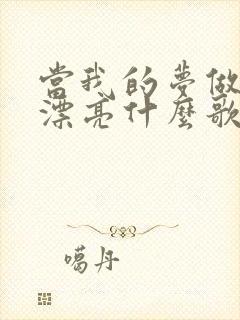 當我的夢做
漂亮什麼歌
噶丹